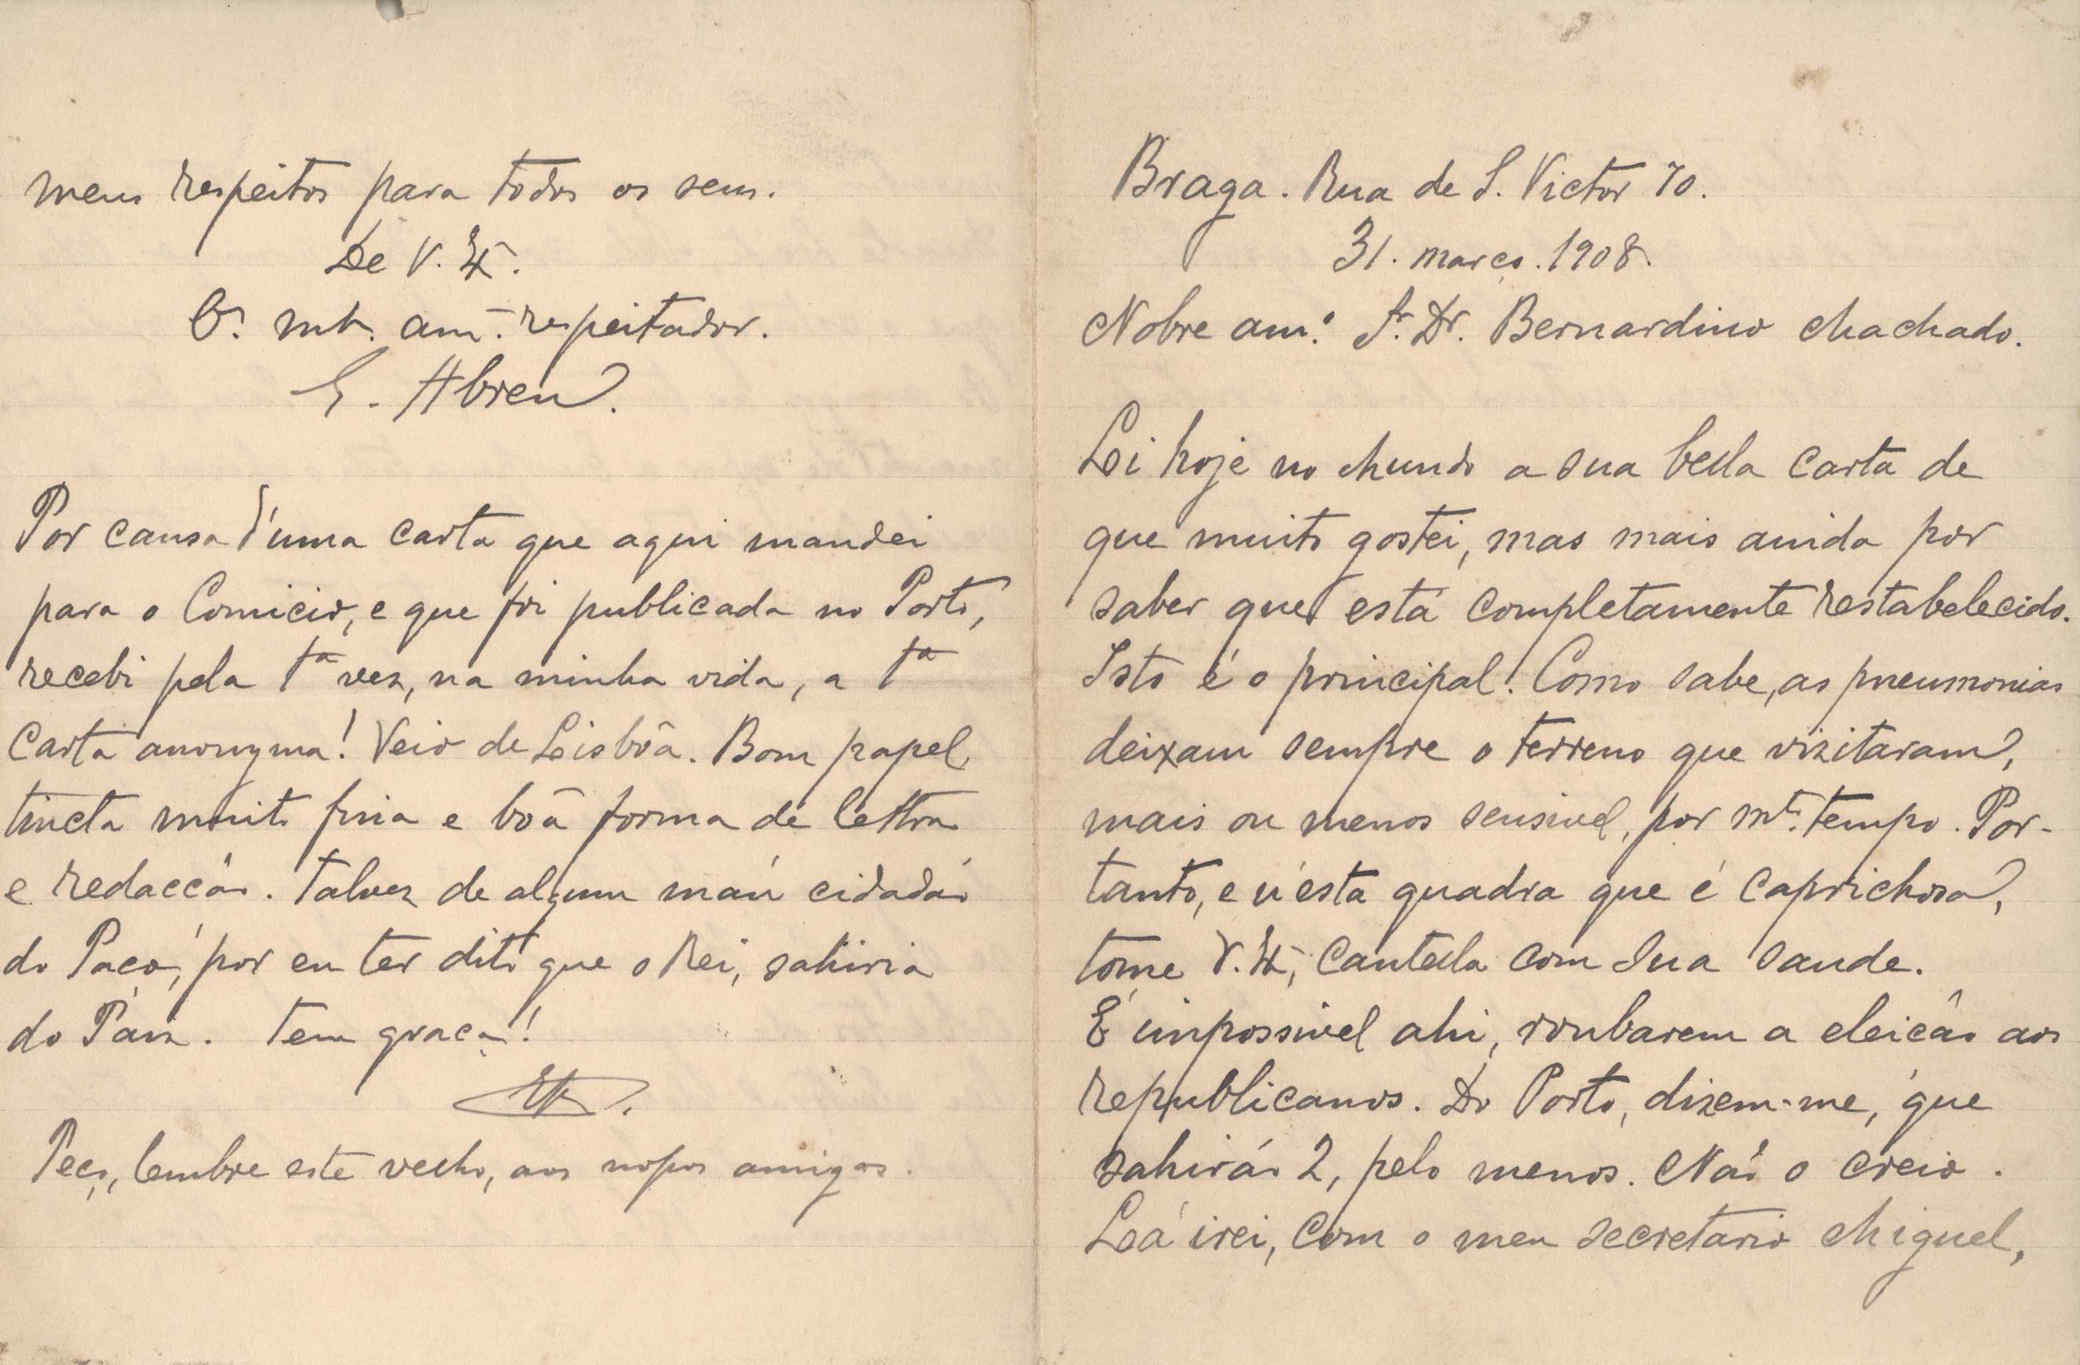 Braga. Rua de S. Victor 70.
31. março. 1908.
Nobre am.º Sr. Dr. Bernardino Machado.
Li hoje no Mundo a sua bella carta de
que muito gostei, mas mais ainda por
saber que está completamente restabelecido.
Isto é o principal! Como sabe, as pneumonias
deixam sempre o terreno que vizitaram,
mais ou menos sensivel, por mt.º tempo. Por-
tanto, e n'esta quadra que é caprichosa,
tome V. Ex, cautela com sua saude.
É impossivel ahi, roubarem a eleição aos
republicanos. Do Porto, dizem-me, que
sahirão 2, pelo menos. Não o creio.
Lá irei, com o meu secretario Miguel,
meus respeitos para todos os seus.
De V. Ex.
mt. am. respeitador.
E. Abreu.
Por causa d'uma carta que aqui mandei
para o Comicio, e que foi publicada no Porto,
recebi pela 1ª vez, na minha vida, a 1ª
carta anonyma! Veio de Lisbôa. Bom papel
tincta muito fina e bôa forma de lettra
e redacção. Talvez de algum máu cidadão
do Paço, por eu ter dito que o Rei, sahiria
do Paiz. Tem graça!
EA.
Peço, lembre este velho, aos nossos amigos.